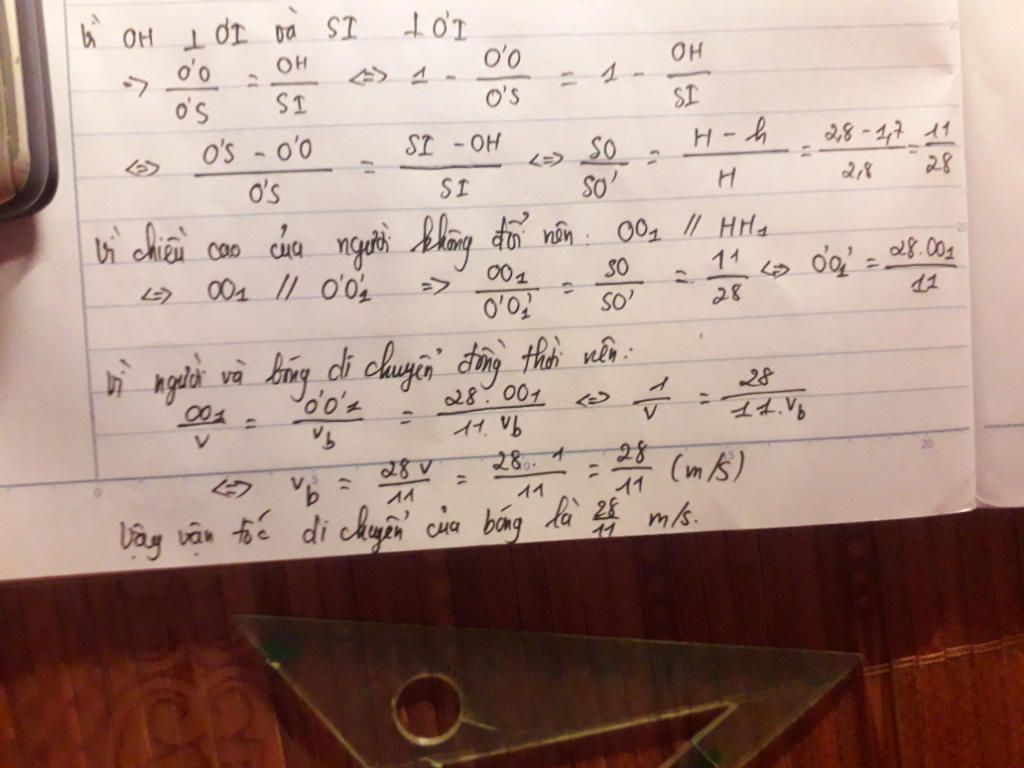 Vì OH ⊥ O'I và SI ⊥ O'I
=> O'O/O'S = OH/SI <=> 1 - O'O/O'S = 1 - OH/SI
<=> (O'S - O'O)/O'S = (SI - OH)/SI <=> SO/SO' = (H - h)/H = (2,8 - 1,7)/2,8 = 11/28
Vì chiều cao của người không đổi nên: OO₁ // HH₁
<=> OO₁ // O'O₁' => OO₁/O'O₁' = SO/SO' = 11/28 <=> O'O₁' = 28.OO₁/11
Vì người và bóng di chuyển đồng thời nên:
OO₁/v = O'O'₁/v_b = 28.OO₁/11.v_b <=> 1/v = 28/11.v_b
<=> v_b = 28v/11 = 28.1/11 = 28/11 (m/s)
Vậy vận tốc di chuyển của bóng là 28/11 m/s.